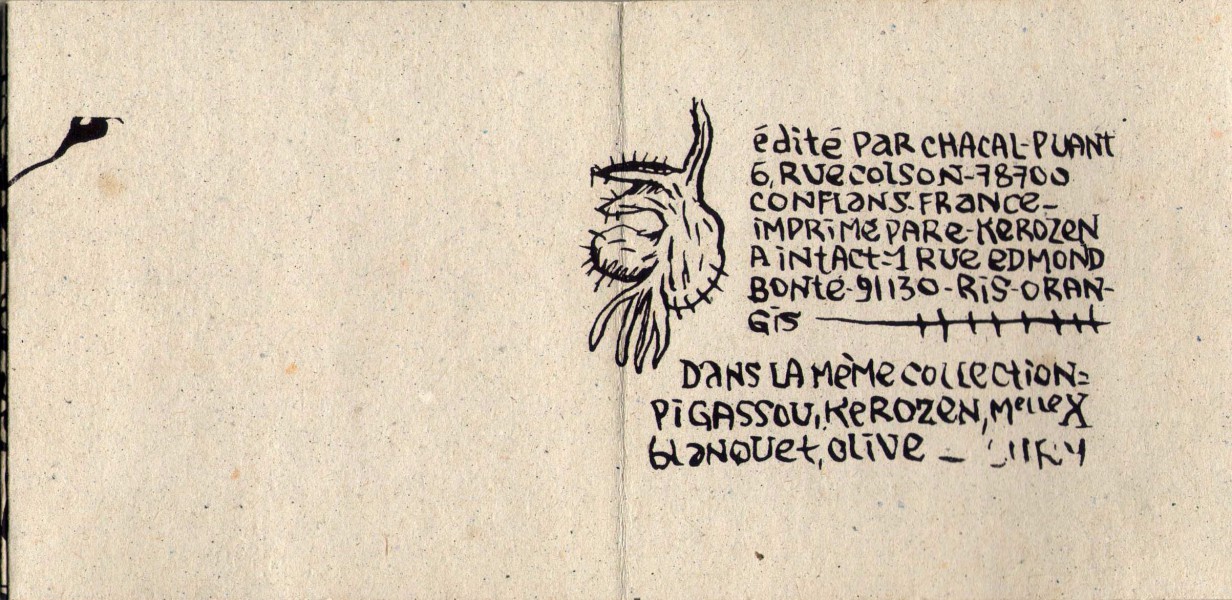 édité PAR CHACAL-PUANT
6, RUE COLSON-78700
CONFLANS. FRANCE-
IMPRIMÉ PAR e-KEROZEN
A INTACT-1 RUE EDMOND
BONTÉ-91130-RIS-ORAN-
GIS
DANS LA MÈME COLLECTION:
PIGASSOU, KEROZEN, MelleX
BLANQUET, OLIVE -